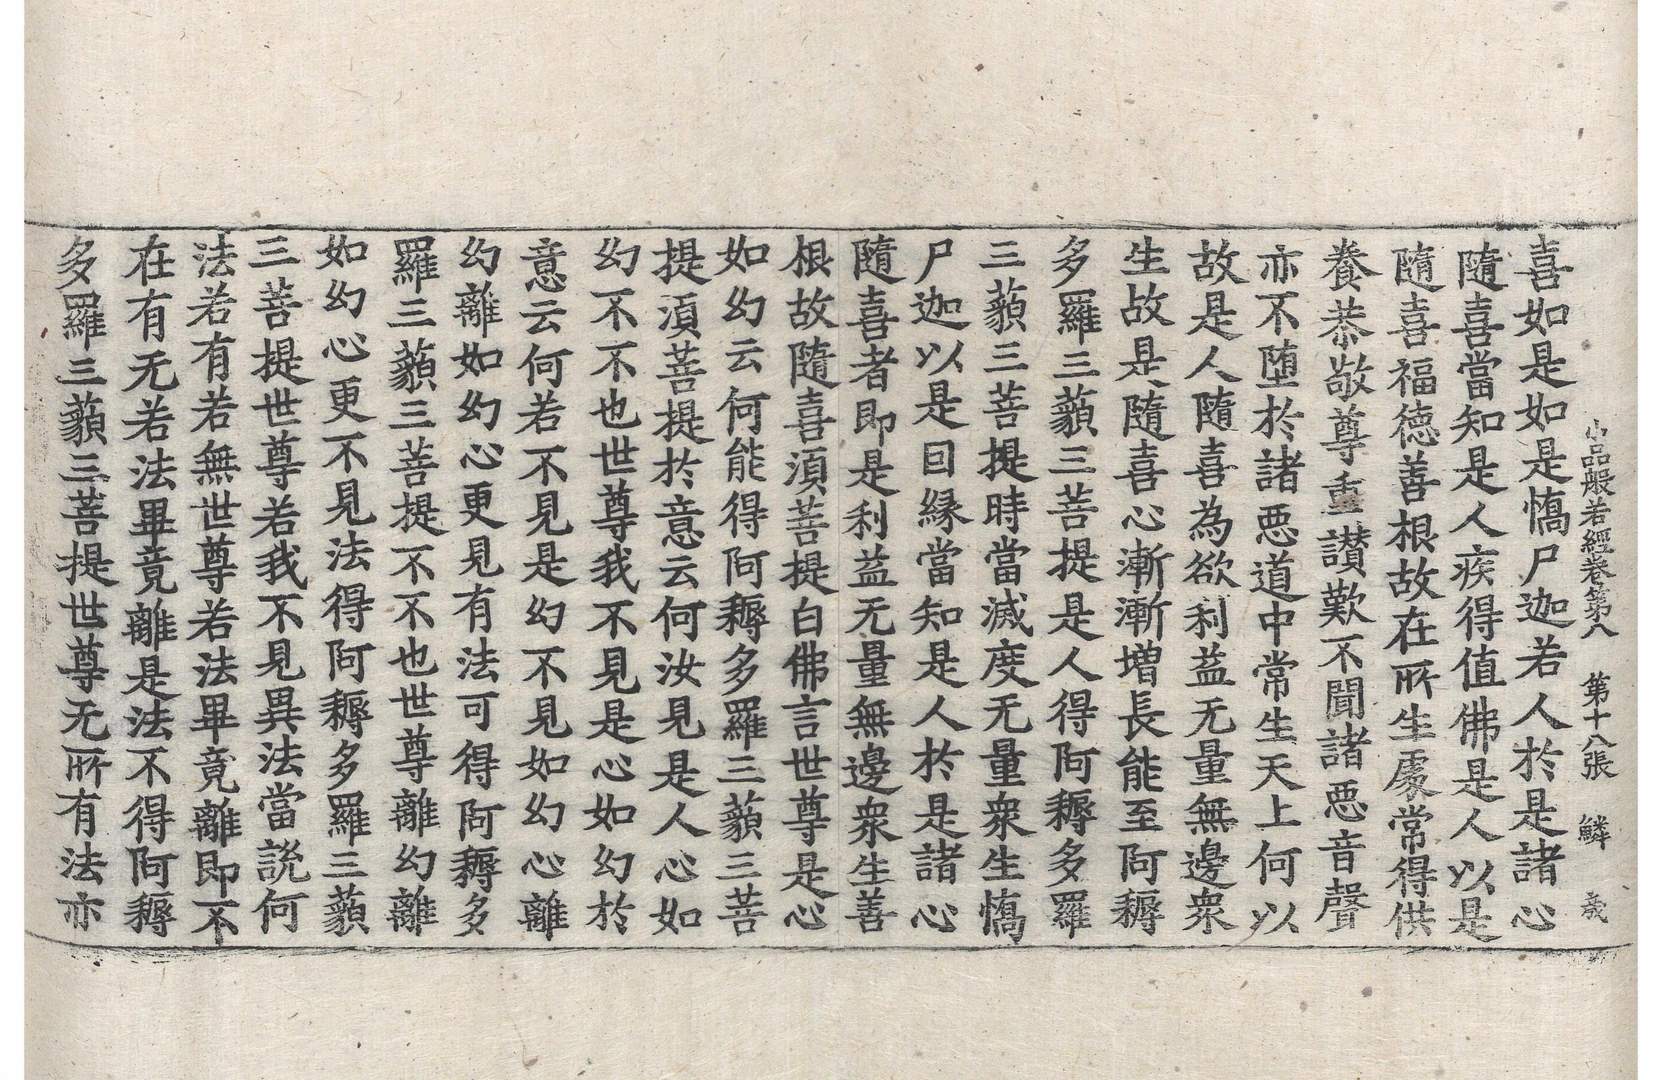 小品般若經卷第八 第十八張 鱗
喜如是如是憍尸迦若人於是諸心
隨喜當知是人疾得值佛是人以是
隨喜福德善根故在所生處常得供
養恭敬尊重讃歎不聞諸惡音聲
亦不墮於諸惡道中常生天上何以
故是人隨喜為欲利益无量無邊衆
生故是隨喜心漸漸增長能至阿耨
多羅三藐三菩提是人得阿耨多羅
三藐三菩提時當滅度无量衆生憍
尸迦以是因緣當知是人於是諸心
隨喜者即是利益无量無邊衆生善
根故隨喜須菩提白佛言世尊是心
如幻云何能得阿耨多羅三藐三菩
提須菩提於意云何汝見是人心如
幻不不也世尊我不見是心如幻於
意云何若不見是幻不見如幻心離
幻離如幻心更見有法可得阿耨多
羅三藐三菩提不不也世尊離幻離
如幻心更不見法得阿耨多羅三藐
三菩提世尊若我不見異法當說何
法若有若無世尊若法畢竟離即不
在有无若法畢竟離是法不得阿耨
多羅三藐三菩提世尊无所有法亦